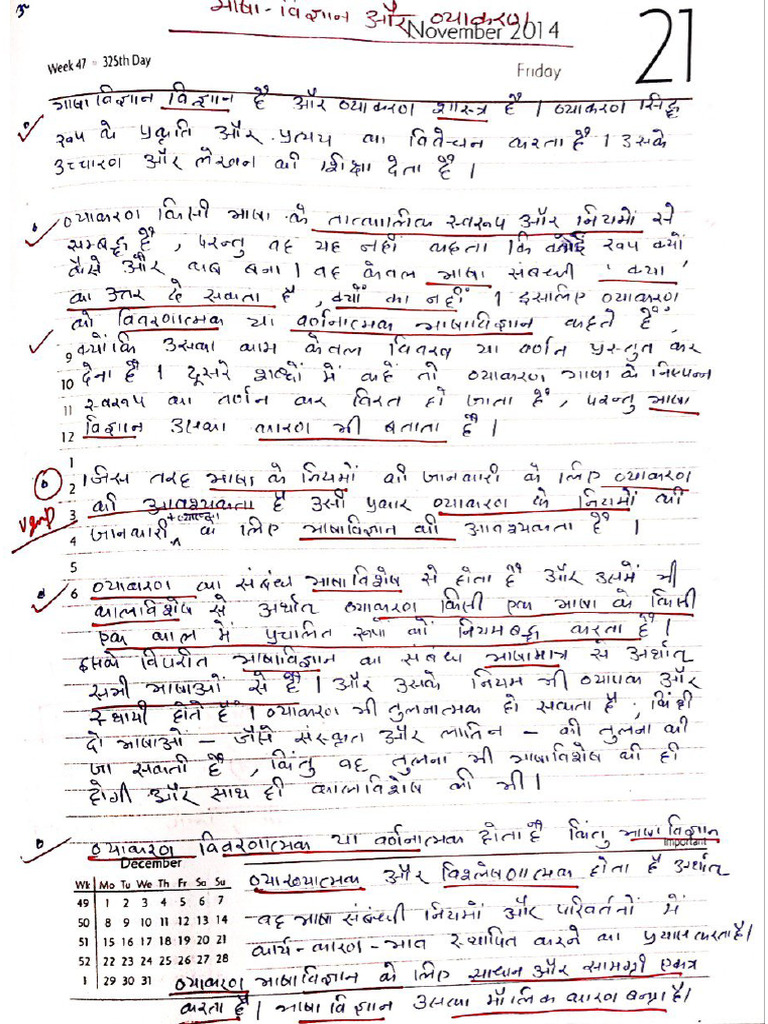 भाषा-विज्ञान और व्याकरण
November 2014
21
Week 47 - 325th Day
Friday
भाषाविज्ञान विज्ञान है और व्याकरण शास्त्र है। व्याकरण सिद्ध
रूप के प्रकृति और प्रत्यय का विवेचन करता है। उसके
उच्चारण और लेखन की शिक्षा देता है।
व्याकरण किसी भाषा के तात्कालिक स्वरूप और नियमों से
सम्बद्ध है, परन्तु वह यह नहीं कहता कि कोई रूप क्यों
कैसे और कब बना। वह केवल भाषा संबंधी 'क्या'
का उत्तर दे सकता है, क्यों का नहीं। इसलिए व्याकरण
को विवरणात्मक या वर्णनात्मक भाषाविज्ञान कहते हैं,
9 क्योंकि उसका काम केवल विवरण या वर्णन प्रस्तुत कर
10 देना है। दूसरे शब्दों में कहें तो व्याकरण भाषा के निष्पन्न
11 स्वरूप का वर्णन कर विरत हो जाता है, परन्तु भाषा
12 विज्ञान उसका कारण भी बताता है।
1
2 जिस तरह भाषा के नियमों की जानकारी के लिए व्याकरण
3 की आवश्यकता है उसी प्रकार व्याकरण के नियमों की
4 जानकारी के लिए भाषाविज्ञान की आवश्यकता है।
5
6 व्याकरण का संबंध भाषाविशेष से होता है और उसमें भी
कालविशेष से अर्थात् व्याकरण किसी एक भाषा के किसी
एक काल में प्रचलित रूपों को नियमबद्ध करता है।
इसके विपरीत भाषाविज्ञान का संबंध भाषामात्र से अर्थात्
सभी भाषाओं से है। और उसके नियम भी व्यापक और
स्थायी होते हैं। व्याकरण भी तुलनात्मक हो सकता है; किन्हीं
दो भाषाओं - जैसे संस्कृत और लातिन - की तुलना की
जा सकती है, किंतु वह तुलना भी भाषाविशेष की ही
होगी और साथ ही कालविशेष की भी।
व्याकरण विवरणात्मक या वर्णनात्मक होता है किंतु भाषाविज्ञान
Important
व्याख्यात्मक और विश्लेषणात्मक होता है अर्थात्
वह भाषा संबंधी नियमों और परिवर्तनों में
कार्य-कारण-भाव स्थापित करने का प्रयास करता है।
व्याकरण भाषाविज्ञान के लिए साधन और सामग्री एकत्र
करता है। भाषाविज्ञान उसका मौलिक कारण बनता है।
December
Wk Mo Tu We Th Fr Sa Su
49 1 2 3 4 5 6 7
50 8 9 10 11 12 13 14
51 15 16 17 18 19 20 21
52 22 23 24 25 26 27 28
1 29 30 31